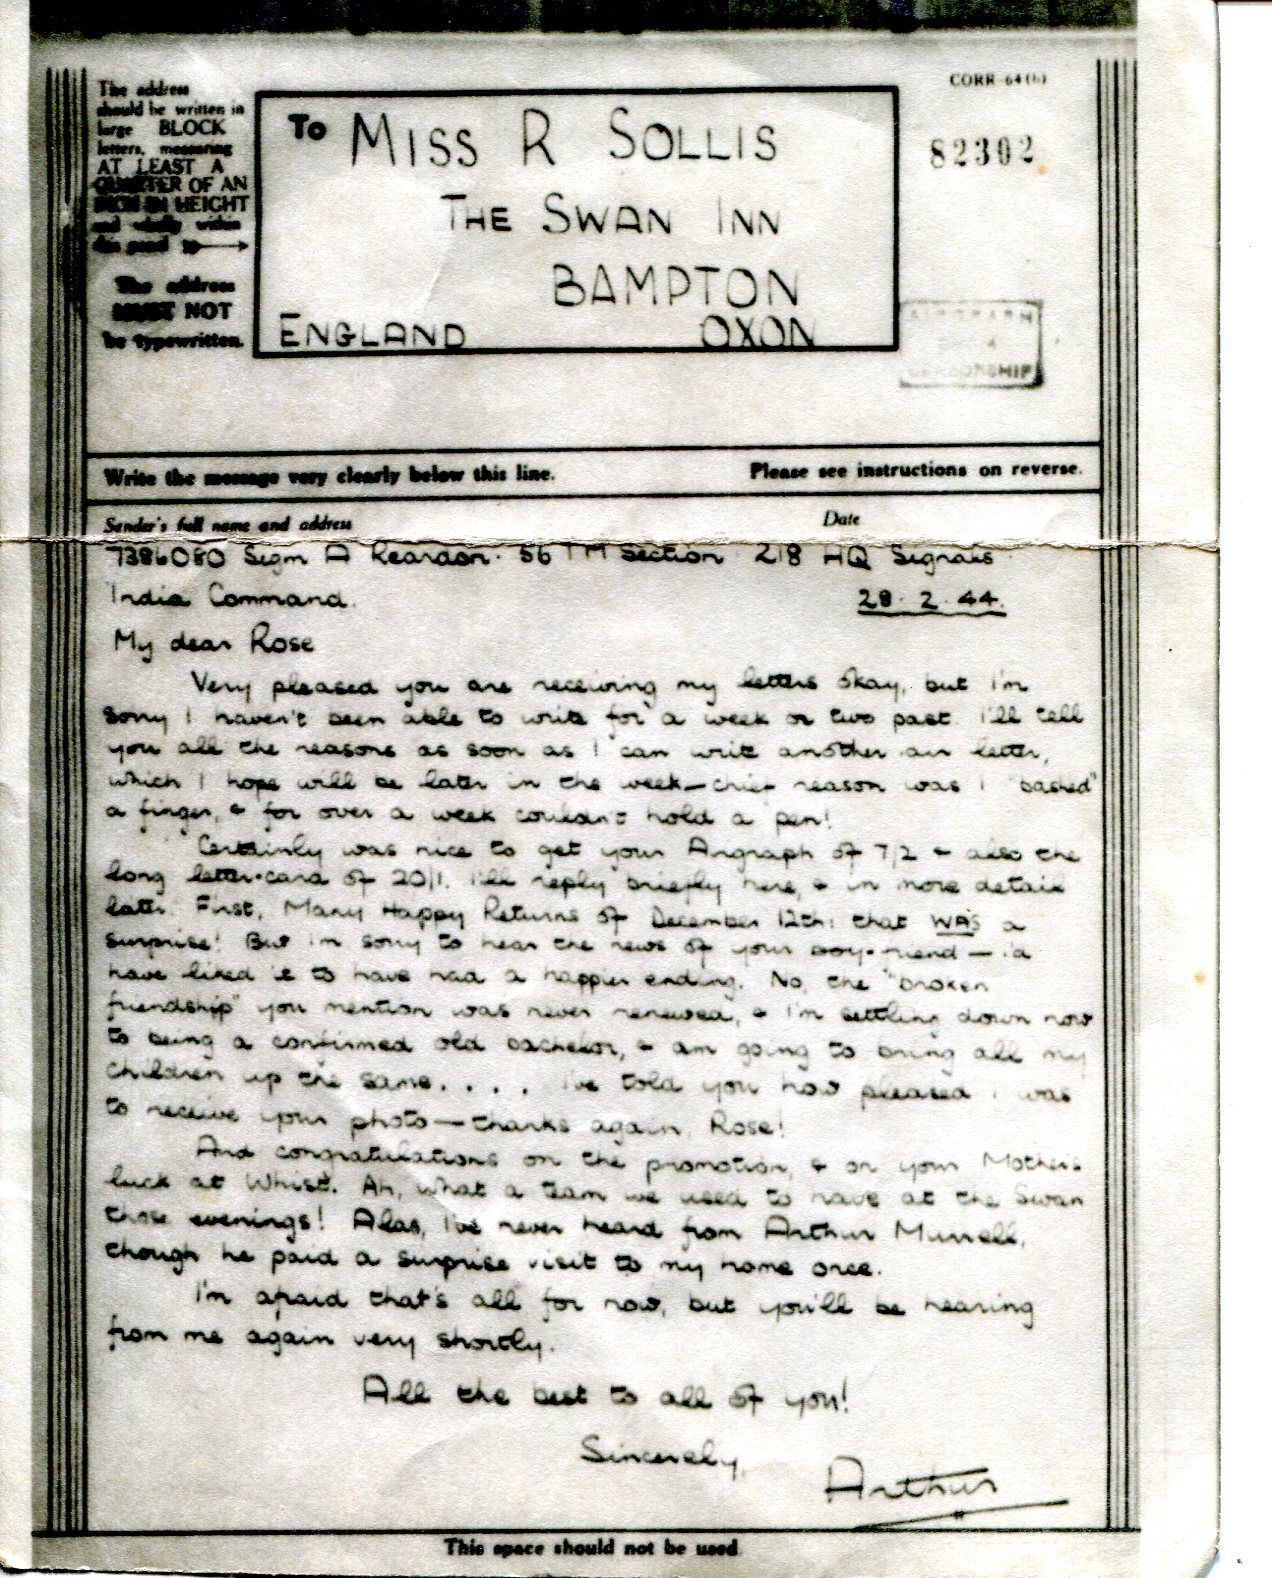 CORR-64(b)
The address
should be written in
large BLOCK
letters, measuring
AT LEAST A
QUARTER OF AN
INCH IN HEIGHT
and wholly within
this panel
The address
MUST NOT
be typewritten.
To MISS R SOLLIS
THE SWAN INN
BAMPTON
ENGLAND OXON
82302
CENSORSHIP
Write the message very clearly below this line. Please see instructions on reverse.
Sender's full name and address Date
7386080 Sigm A Reardon. 56 TM Section 218 HQ Signals
India Command. 28. 2. 44.
My dear Rose
Very pleased you are receiving my letters okay, but I'm
sorry I haven't been able to write for a week or two past. I'll tell
you all the reasons as soon as I can write another air letter,
which I hope will be later in the week — chief reason was I "bashed"
a finger, & for over a week couldn't hold a pen!
Certainly was nice to get your Airgraph of 7/2 & also the
long letter-card of 20/1. I'll reply briefly here, & in more detail
later. First, Many Happy Returns of December 12th: that WAS a
surprise! But I'm sorry to hear the news of your boy-friend — I'd
have liked it to have had a happier ending. No, the "broken
friendship" you mention was never renewed, & I'm settling down now
to being a confirmed old bachelor, & am going to bring all my
children up the same. . . . I've told you how pleased I was
to receive your photo — thanks again, Rose!
And congratulations on the promotion, & on your Mother's
luck at Whist. Ah, what a team we used to have at the Swan
those evenings! Alas, I've never heard from Arthur
though he paid a surprise visit to my home once.
I'm afraid that's all for now, but you'll be hearing
from me again very shortly.
All the best to all of you!
Sincerely,
Arthur
This space should not be used